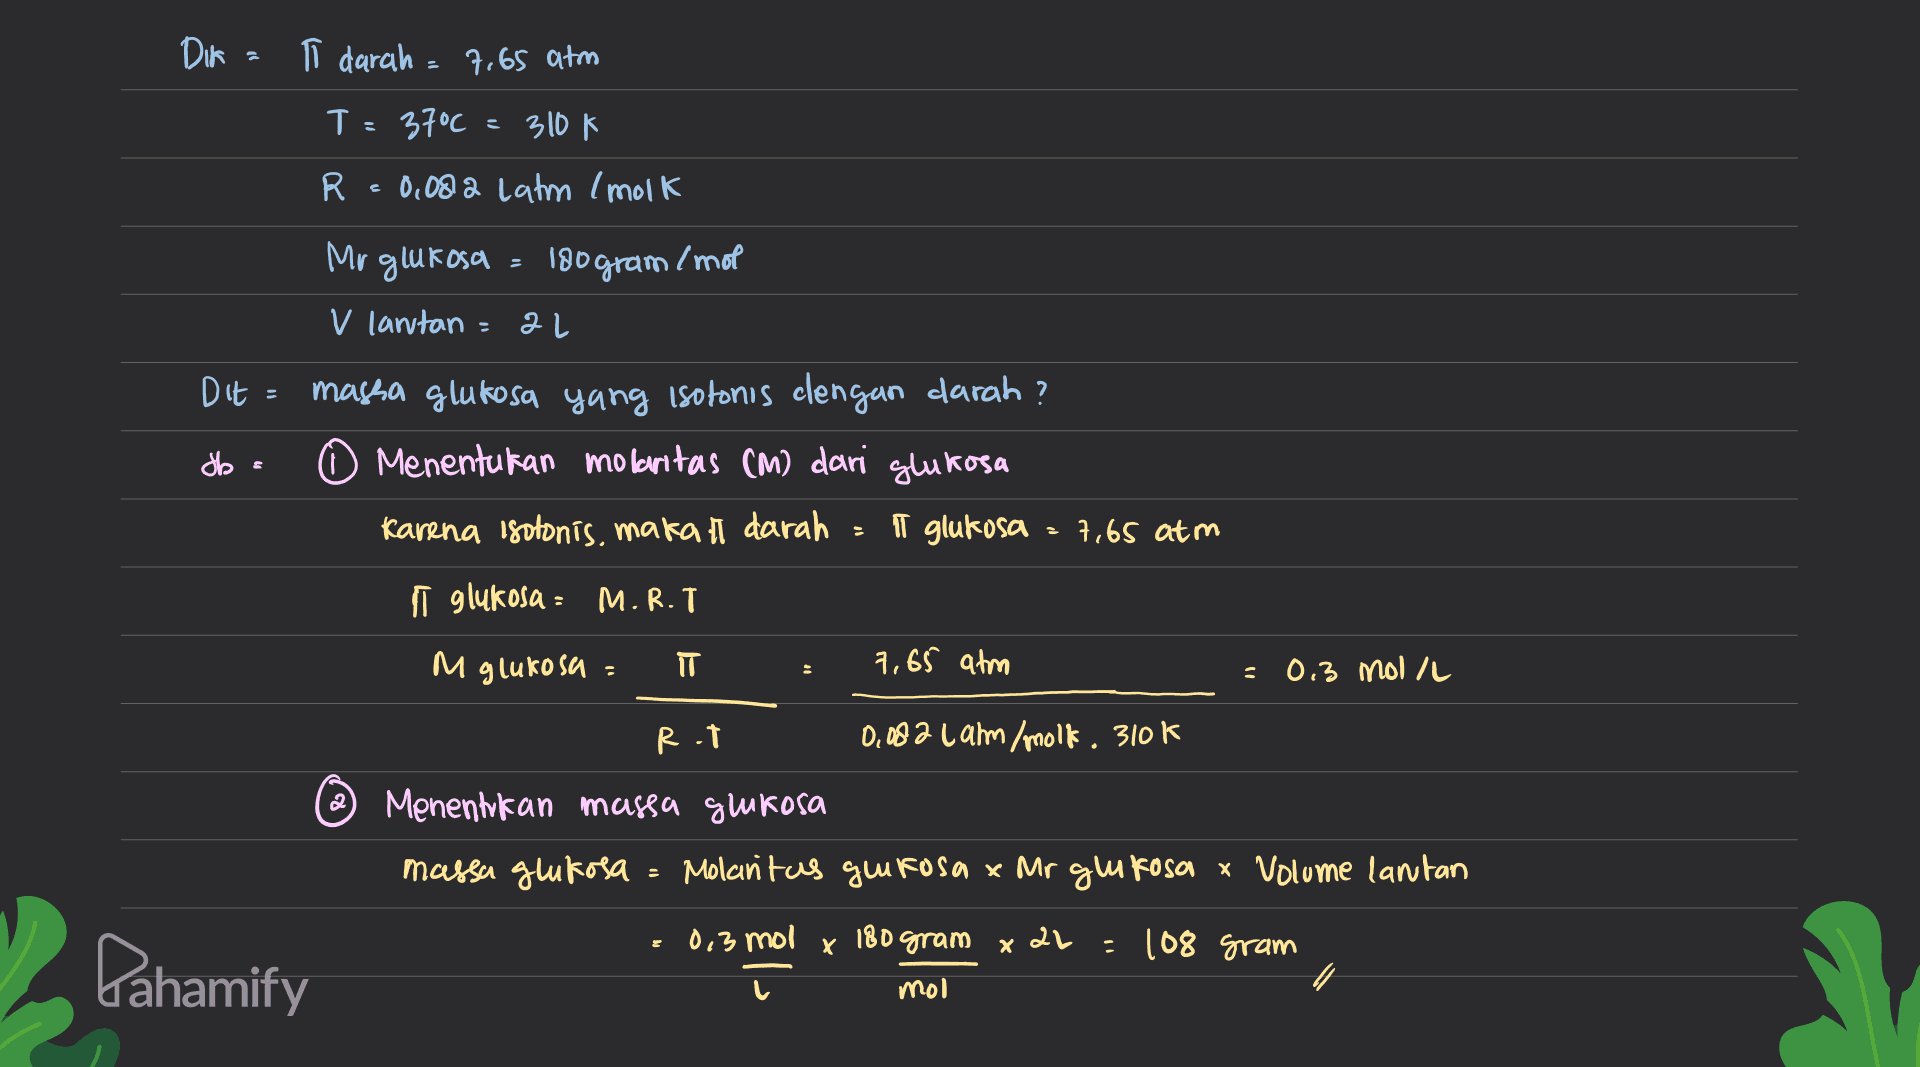 Dik = π darah = 7,65 atm
T = 37°C = 310 K
R = 0,082 Latm/molK
Mr glukosa = 180 gram/mol
V larutan = 2 L
Dit = massa glukosa yang isotonis dengan darah?
db = ① Menentukan molaritas (M) dari glukosa
Karena isotonis, maka π darah = π glukosa = 7,65 atm
π glukosa = M.R.T
M glukosa = π / R.T = 7,65 atm / 0,082 Latm/molk . 310 K = 0,3 mol/L
② Menentukan massa glukosa
massa glukosa = Molaritas glukosa x Mr glukosa x Volume larutan
= 0,3 mol/L x 180 gram/mol x 2L = 108 gram //
Pahamify